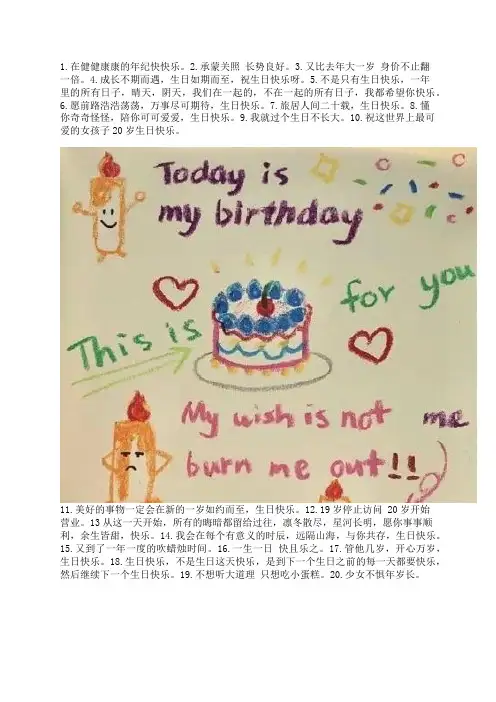 1.在健健康康的年纪快快乐。2.承蒙关照 长势良好。3.又比去年大一岁 身价不止翻
一倍。4.成长不期而遇，生日如期而至，祝生日快乐呀。5.不是只有生日快乐，一年
里的所有日子，晴天，阴天，我们在一起的，不在一起的所有日子，我都希望你快乐。
6.愿前路浩浩荡荡，万事尽可期待，生日快乐。7.旅居人间二十载，生日快乐。8.懂
你奇奇怪怪，陪你可可爱爱，生日快乐。9.我就过个生日不长大。10.祝这世界上最可
爱的女孩子20岁生日快乐。
Today is
my birthday
for you
This is
My wish is not me
burn me out!!
11.美好的事物一定会在新的一岁如约而至，生日快乐。12.19岁停止访问 20岁开始
营业。13从这一天开始，所有的晦暗都留给过往，凛冬散尽，星河长明，愿你事事顺
利，余生皆甜，快乐。14.我会在每个有意义的时辰，远隔山海，与你共存，生日快乐。
15.又到了一年一度的吹蜡烛时间。16.一生一日 快且乐之。17.管他几岁，开心万岁，
生日快乐。18.生日快乐，不是生日这天快乐，是到下一个生日之前的每一天都要快乐，
然后继续下一个生日快乐。19.不想听大道理 只想吃小蛋糕。20.少女不惧年岁长。